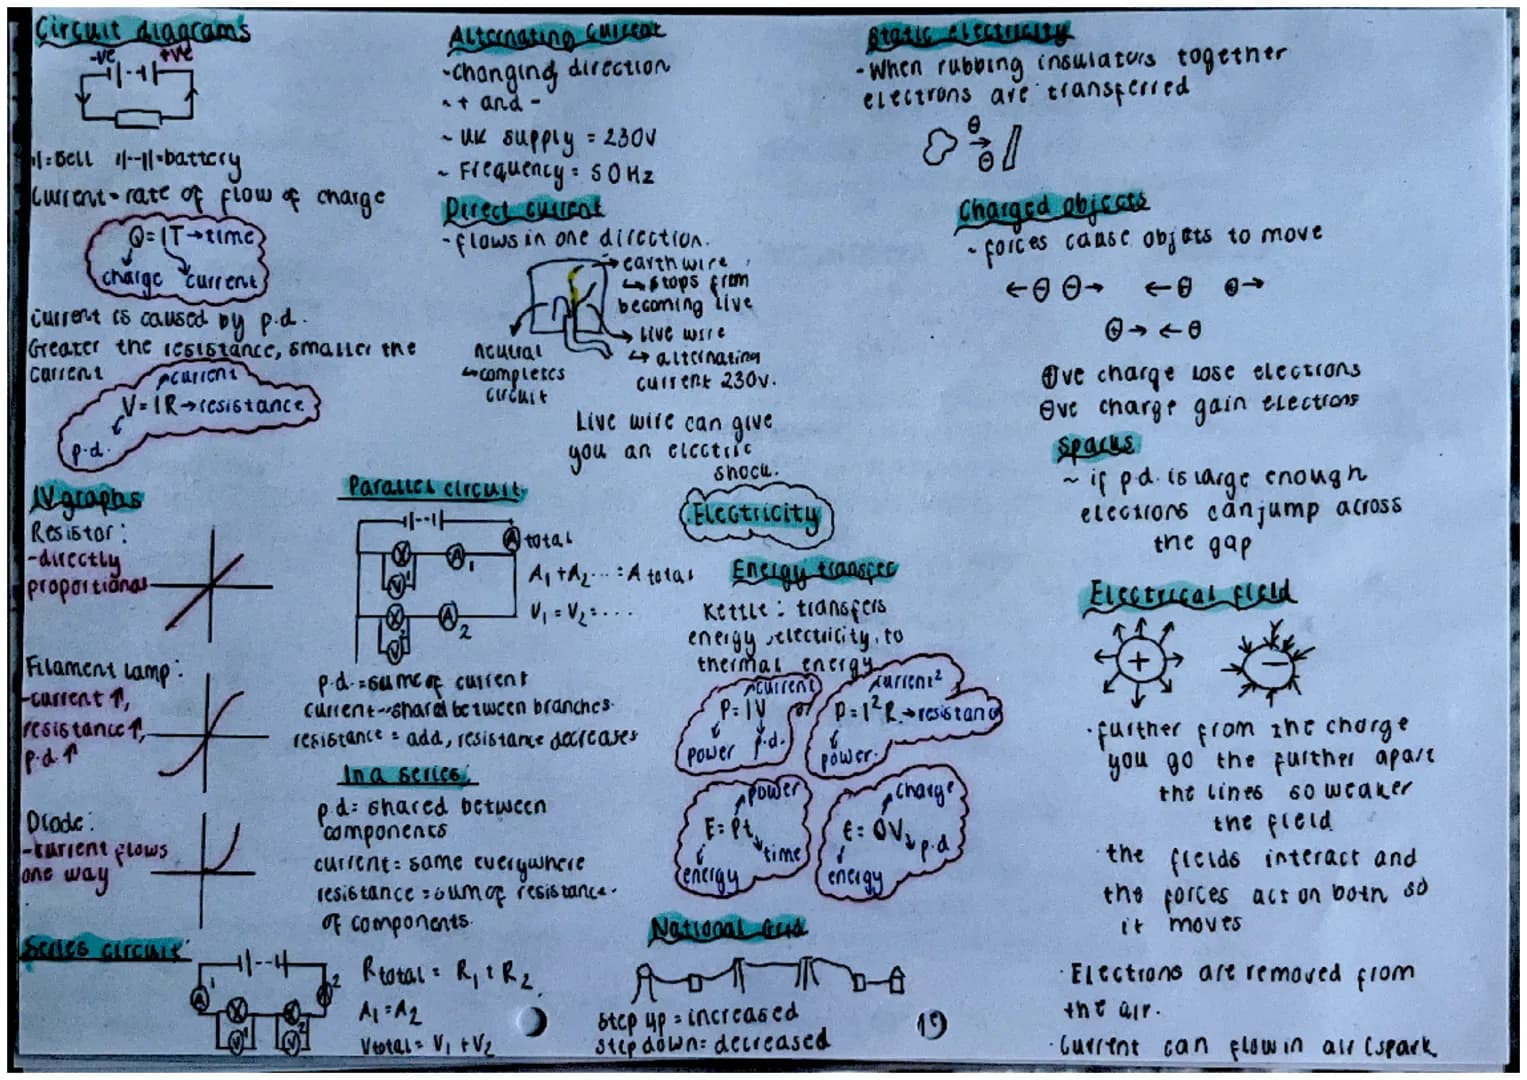 Circuit diagrams
-ve +ve
=Cell =battery
Current - rate of flow of charge
Q=IT→time
charge current
Current is caused by p.d.
Greater the resistance, smaller the
current
current
V=IR→resistance
p.d.
IV graphs
Resistor:
-directly
proportional
Filament lamp:
-current ↑,
resistance ↑,
p.d. ↑
Diode:
-current flows
one way
Series circuit:
A 1 A 2
X X
V 1 V 2
Rtotal = R1 + R2
A1 = A2
Vtotal = V1 + V2
Alternating current
-changing direction
~ + and -
~ UK supply = 230V
~ Frequency = 50Hz
Direct current
-flows in one direction.
→earth wire
↳ stops from
becoming live
→ live wire
↳ alternating
current 230v.
neutral
↳completes
circuit
Live wire can give
you an electric
shock.
Parallel circuit
A total
X A1
V1
X A2
V2
A1 + A2 ... = A total
V1 = V2 = ...
p.d. = same of current
current - shared between branches.
resistance = add, resistance decreases
In a series:
p.d = shared between
components
current = same everywhere
resistance = sum of resistance.
of components.
Electricity
Energy transfer
Kettle: transfers
energy, electricity, to
thermal energy
current
P=IV or
power p.d.
current²
P=I²R→resistance
power.
power
E=Pt
time
energy
charge
E=QV
p.d
energy
National Grid
step up = increased
step down = decreased
19
Static electricity
-When rubbing insulators together
electrons are transferred
Charged objects
~ forces cause objects to move
⊕ve charge lose electrons
⊖ve charge gain electrons
Sparks
~ if p.d. is large enough
electrons can jump across
the gap
Electrical field
+ −
· further from the charge
you go the further apart
the lines so weaker
the field
· the fields interact and
the forces act on both so
it moves
· Electrons are removed from
the air.
· Current can flow in air (spark